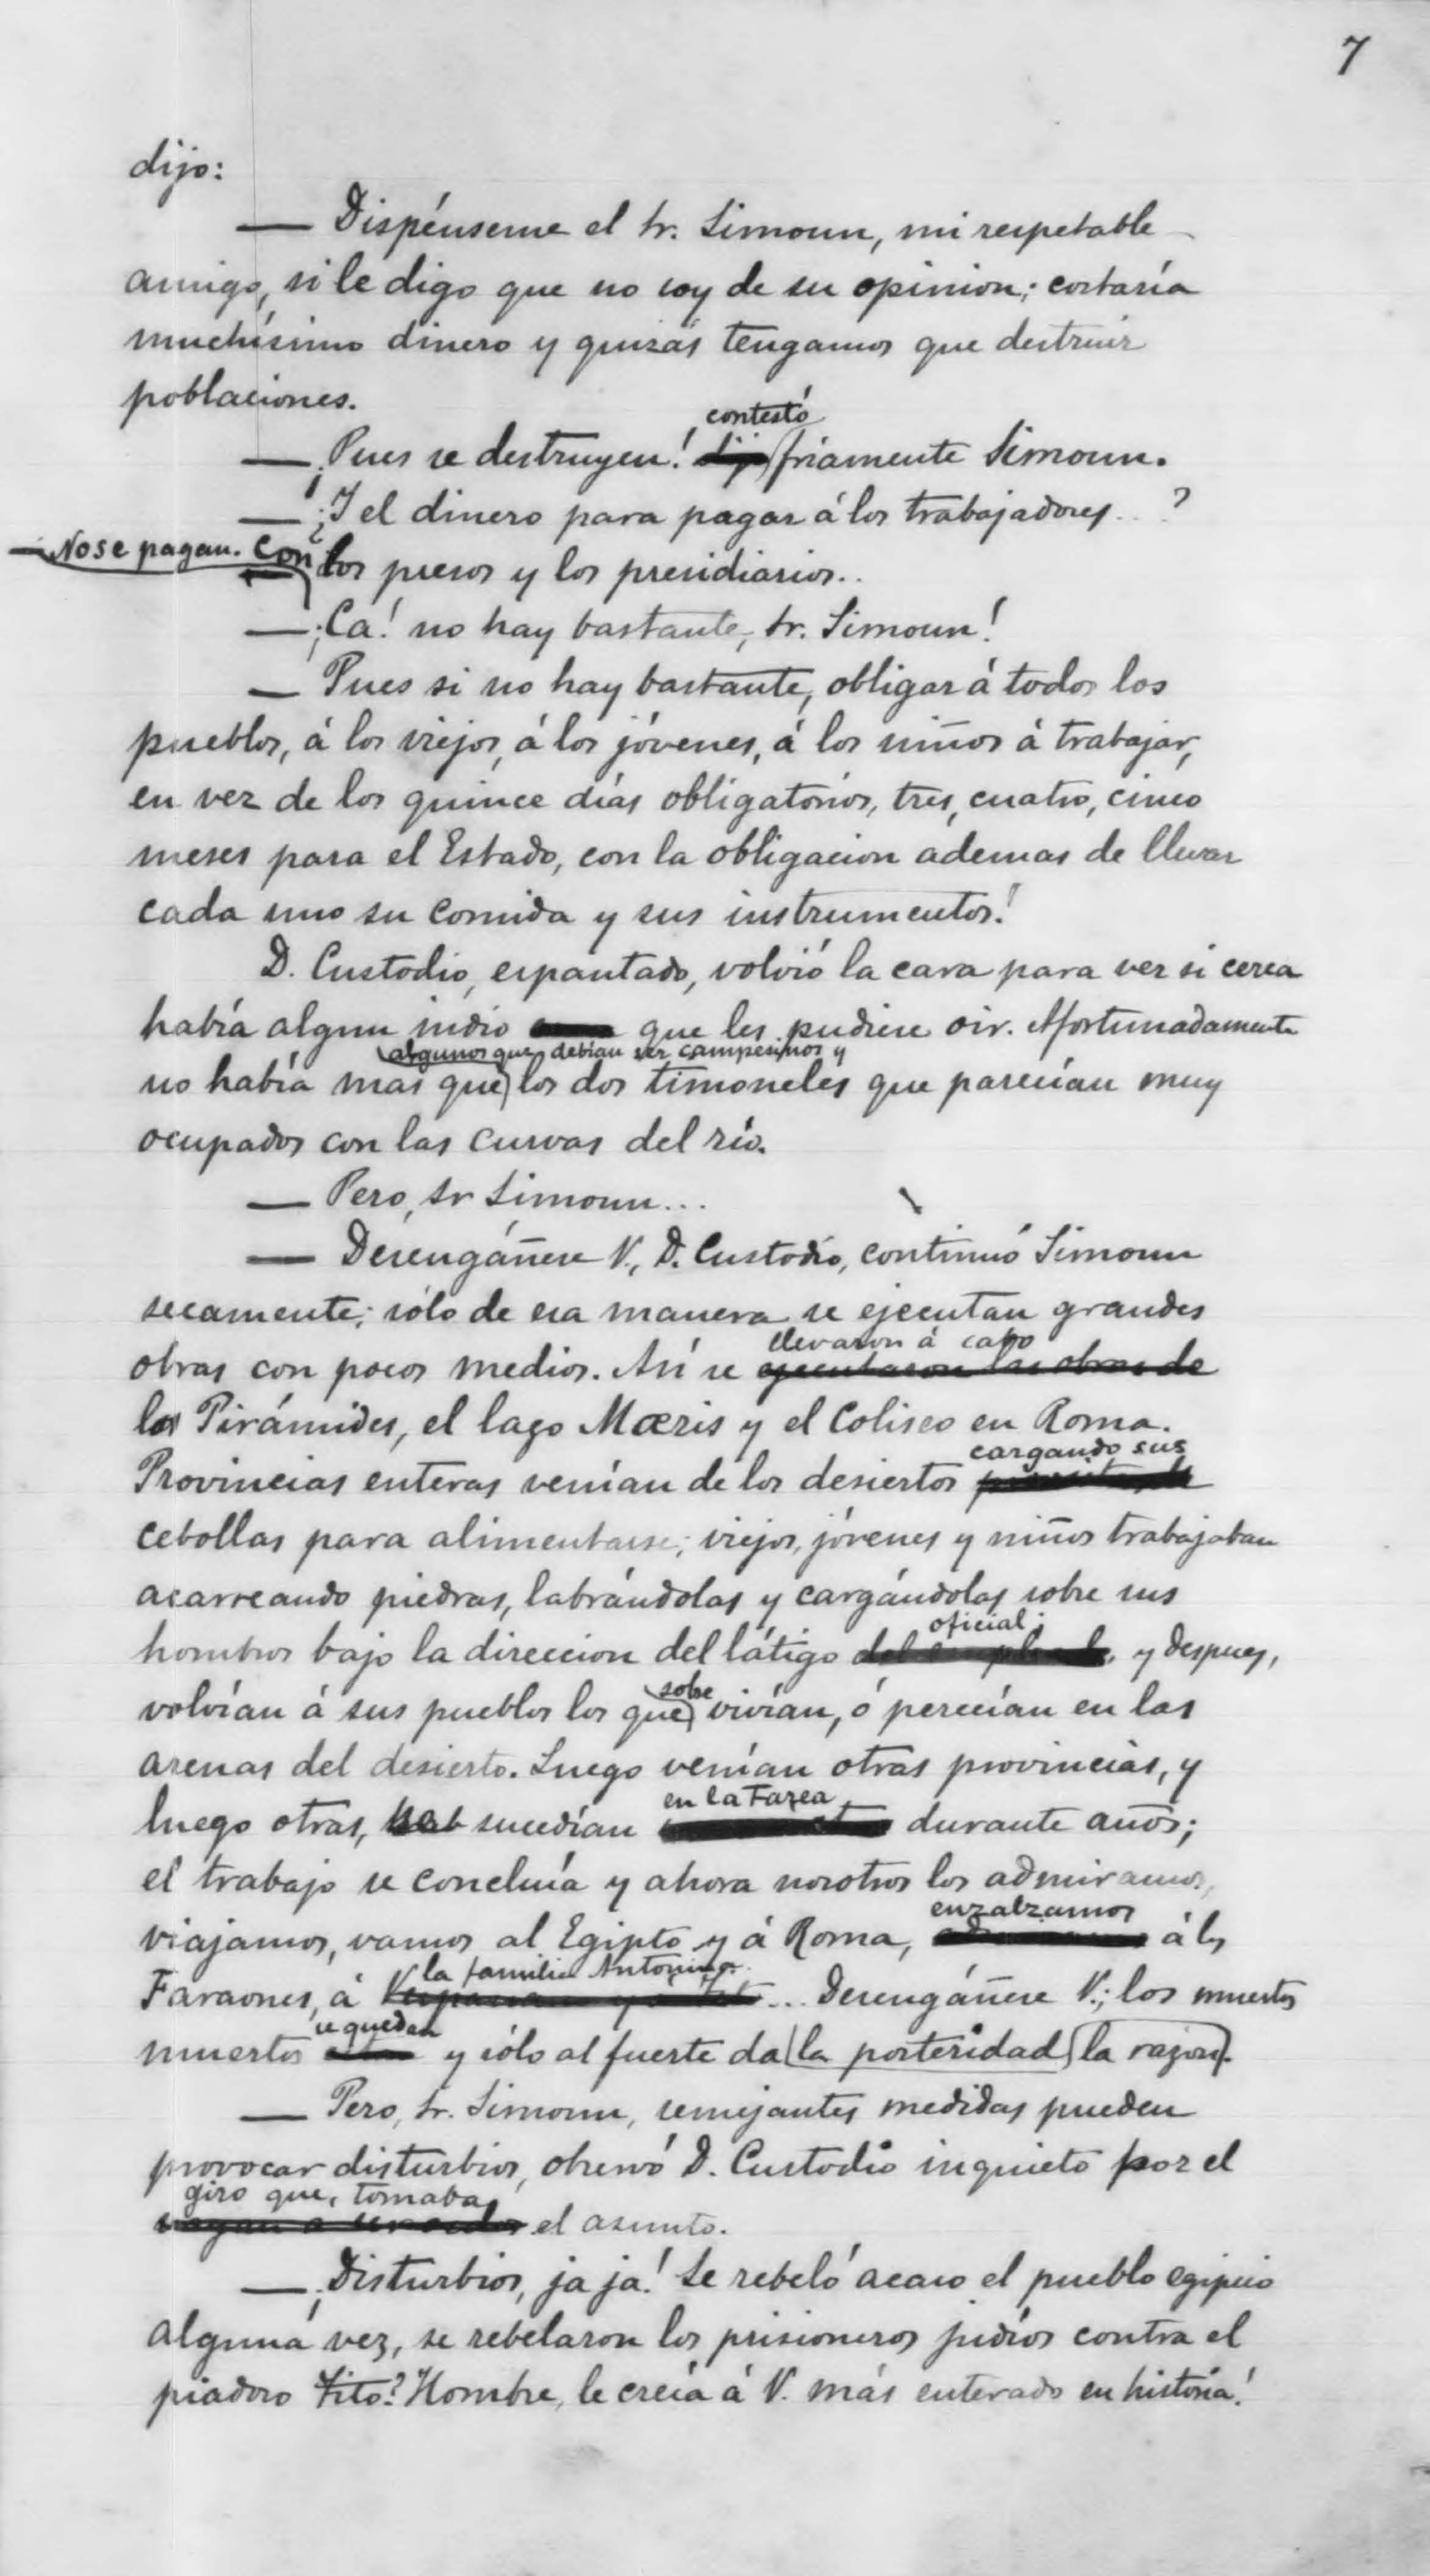 7
dijo:
— Dispénseme el Sr. Simoun, mi respetable
amigo, si le digo que no soy de su opinion; costaría
muchísimo dinero y quizás tengamos que destruir
poblaciones.
contestó
—¡Pues se destruyen! friamente Simoun.
—¿Y el dinero para pagar á los trabajadores...?
—No se pagan. Con los presos y los presidiarios..
—¡Ca! no hay bastante, Sr. Simoun!
— Pues si no hay bastante, obligar á todos los
pueblos, á los viejos, á los jóvenes, á los niños á trabajar,
en vez de los quince días obligatorios, tres, cuatro, cinco
meses para el Estado, con la obligacion ademas de llevar
cada uno su comida y sus instrumentos!
D. Custodio, espantado, volvió la cara para ver si cerca
había algun indio que les pudiese oir. Afortunadamente
algunos que debían ser campesinos y
no había mas que los dos timoneles que parecían muy
ocupados con las curvas del río.
— Pero, Sr Simoun...
— Desengáñese V., D. Custodio, continuó Simoun
secamente; sólo de esa manera se ejecutan grandes
llevaron á cabo
obras con pocos medios. Así se ejecutaron las obras de
las Pirámides, el lago Mœris y el Coliseo en Roma.
cargando sus
Provincias enteras venían de los desiertos
cebollas para alimentarse; viejos, jóvenes y niños trabajaban
acarreando piedras, labrándolas y cargándolas sobre sus
oficial;
hombros bajo la direccion del látigo del y despues,
sobre
volvían á sus pueblos los que vivían, ó perecían en las
arenas del desierto. Luego venían otras provincias, y
en la tarea
luego otras, sucedían durante años;
el trabajo se concluía y ahora nosotros los admiramos,
enzalzamos
viajamos, vamos al Egipto y á Roma, á los
la familia Antonina.
Faraones, á ... Desengáñese V.; los muertos
se quedan
muertos y sólo al fuerte da la posteridad la razon.
— Pero, Sr. Simoun, semejantes medidas pueden
provocar disturbios, observó D. Custodio inquieto por el
giro que, tomaba
el asunto.
—¡Disturbios, ja ja! Se rebeló acaso el pueblo egipcio
alguna vez, se rebelaron los prisioneros judíos contra el
piadoso Tito? Hombre, le creía á V. más enterado en historia!